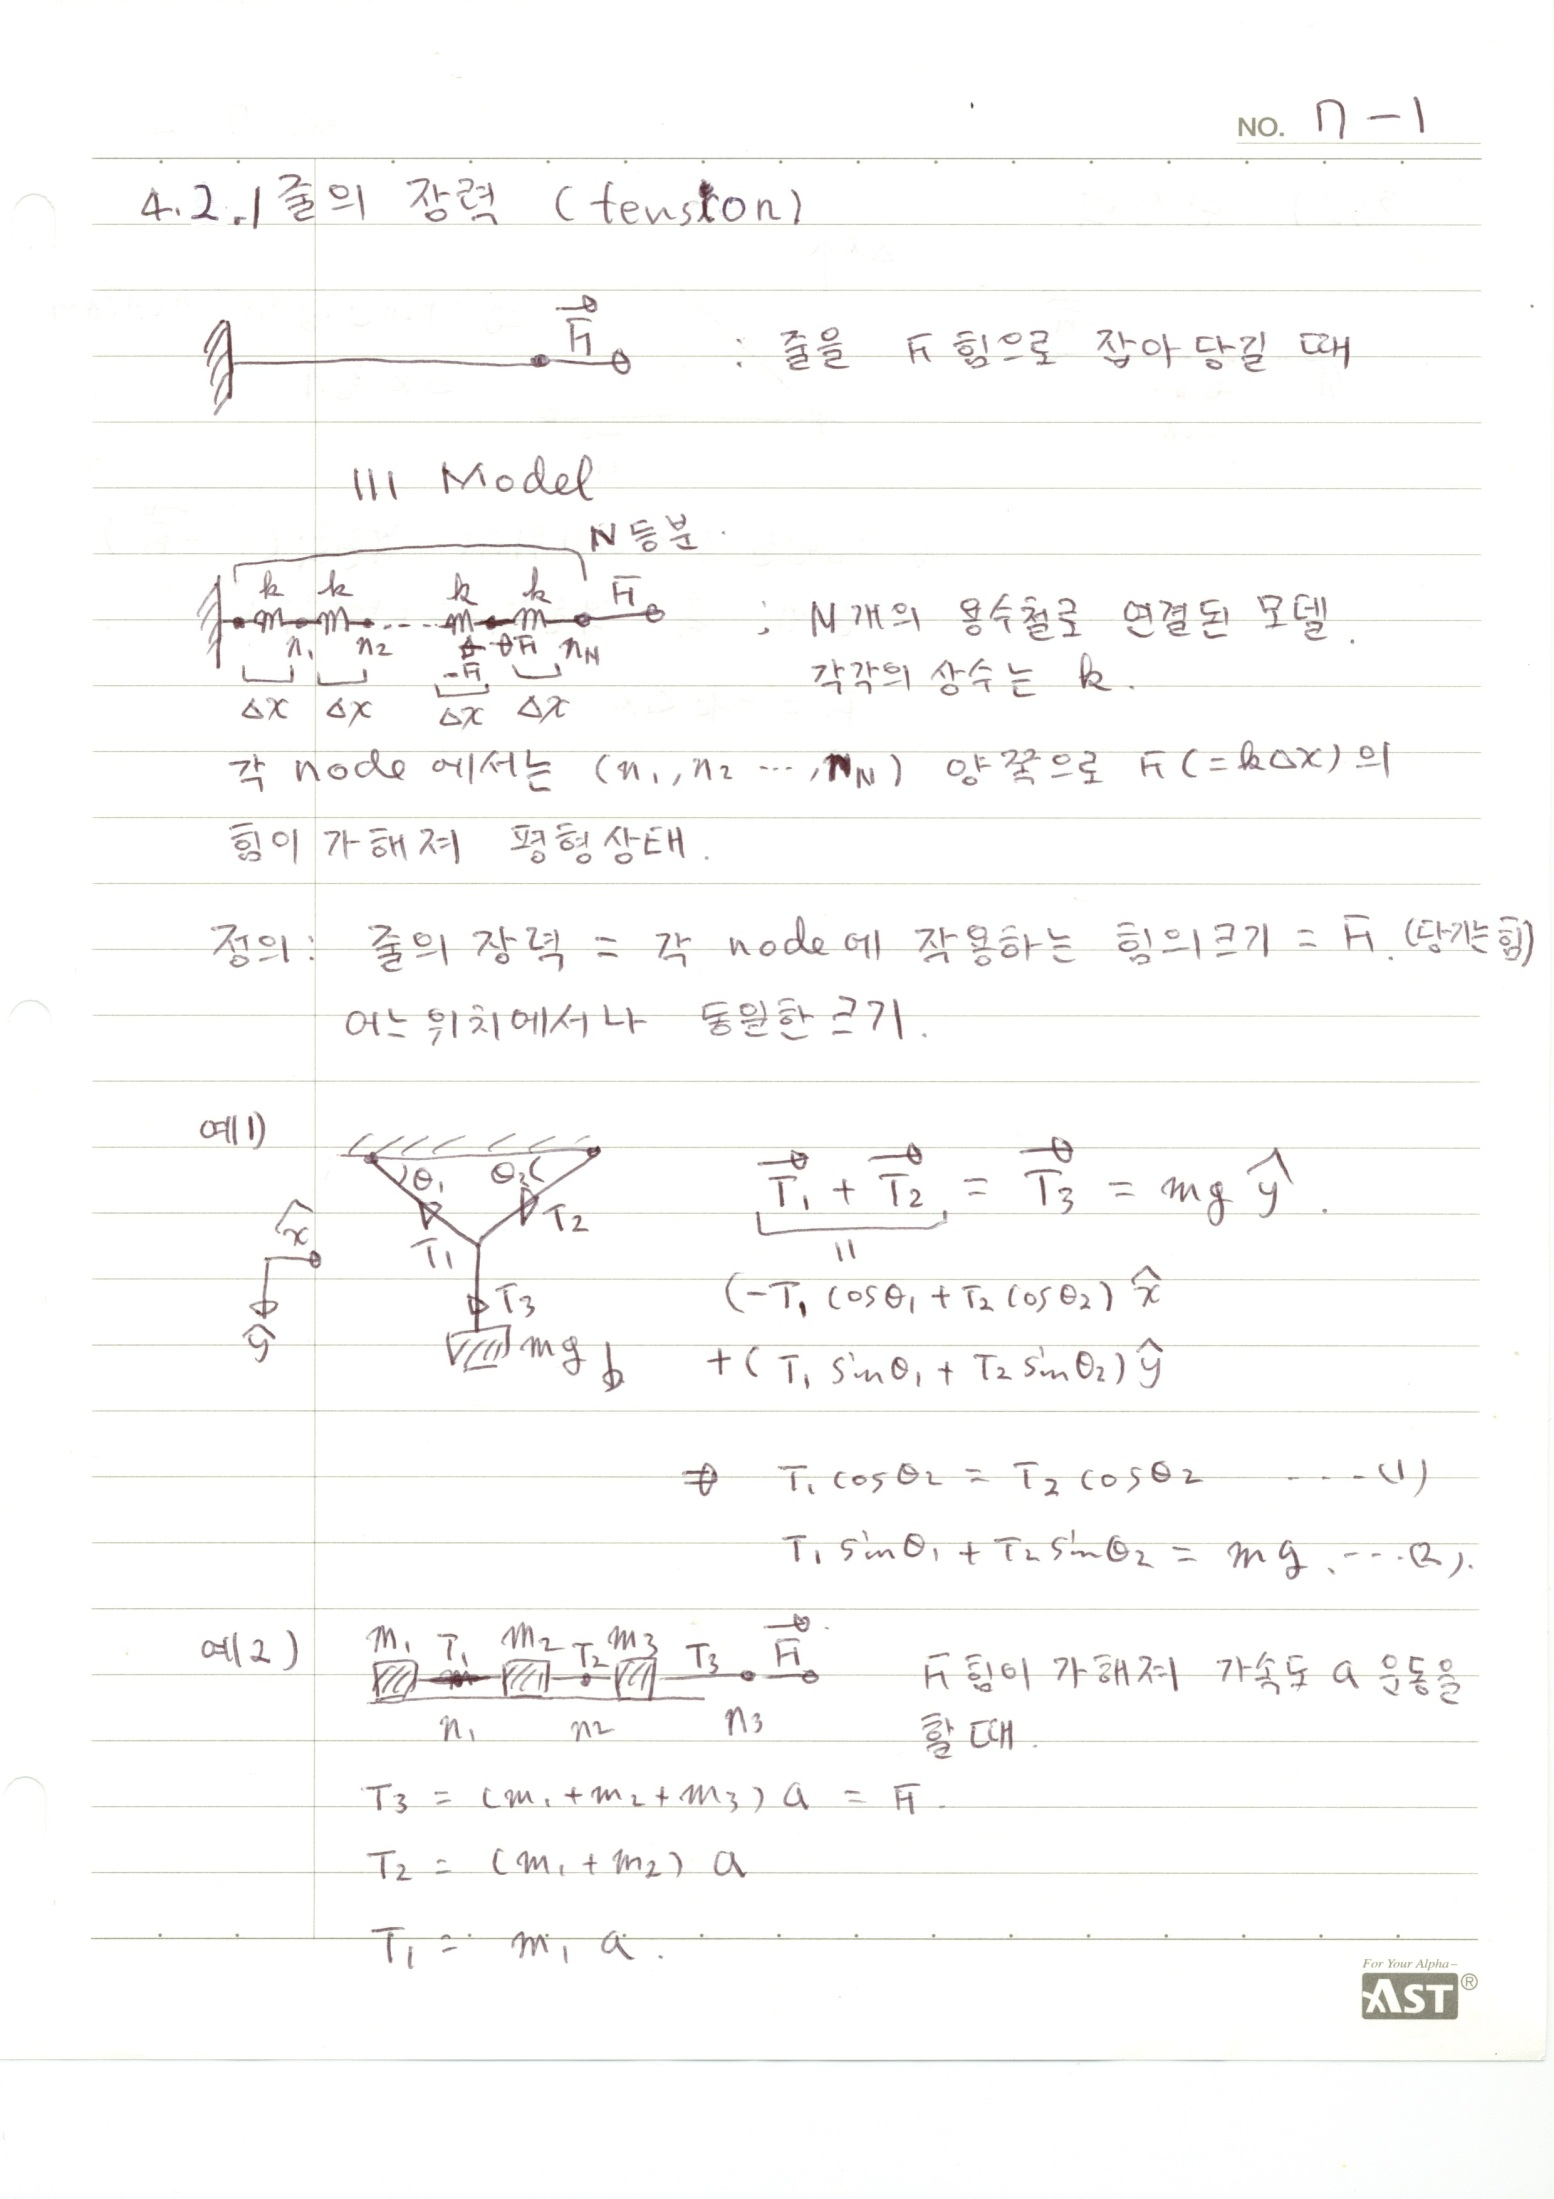 NO. 7-1
4.2.1 줄의 장력 (tension)
F : 줄을 F 힘으로 잡아 당길 때
||| Model
N 등분.
k k k k F
; N개의 용수철로 연결된 모델.
n₁ n₂ -F F n_N
각각의 상수는 k.
Δx Δx Δx Δx
각 node 에서는 (n₁, n₂ ..., n_N) 양쪽으로 F (= kΔx) 의
힘이 가해져 평형상태.
정의: 줄의 장력 = 각 node에 작용하는 힘의 크기 = F. (당기는 힘)
어느 위치에서나 동일한 크기.
예1)
θ₁ θ₂ T₁ T₂ T₃ mg
x̂ ŷ
T⃗₁ + T⃗₂ = T⃗₃ = mg ŷ.
||
(-T₁ cosθ₁ + T₂ cosθ₂) x̂
+ (T₁ sinθ₁ + T₂ sinθ₂) ŷ
⇒ T₁ cosθ₂ = T₂ cosθ₂ ....(1)
T₁ sinθ₁ + T₂ sinθ₂ = mg. ....(2).
예2) m₁ T₁ m₂ T₂ m₃ T₃ F⃗
F 힘이 가해져 가속도 a 운동을
n₁ n₂ n₃
할 때.
T₃ = (m₁ + m₂ + m₃) a = F.
T₂ = (m₁ + m₂) a
T₁ = m₁ a.
For Your Alpha-
AST®